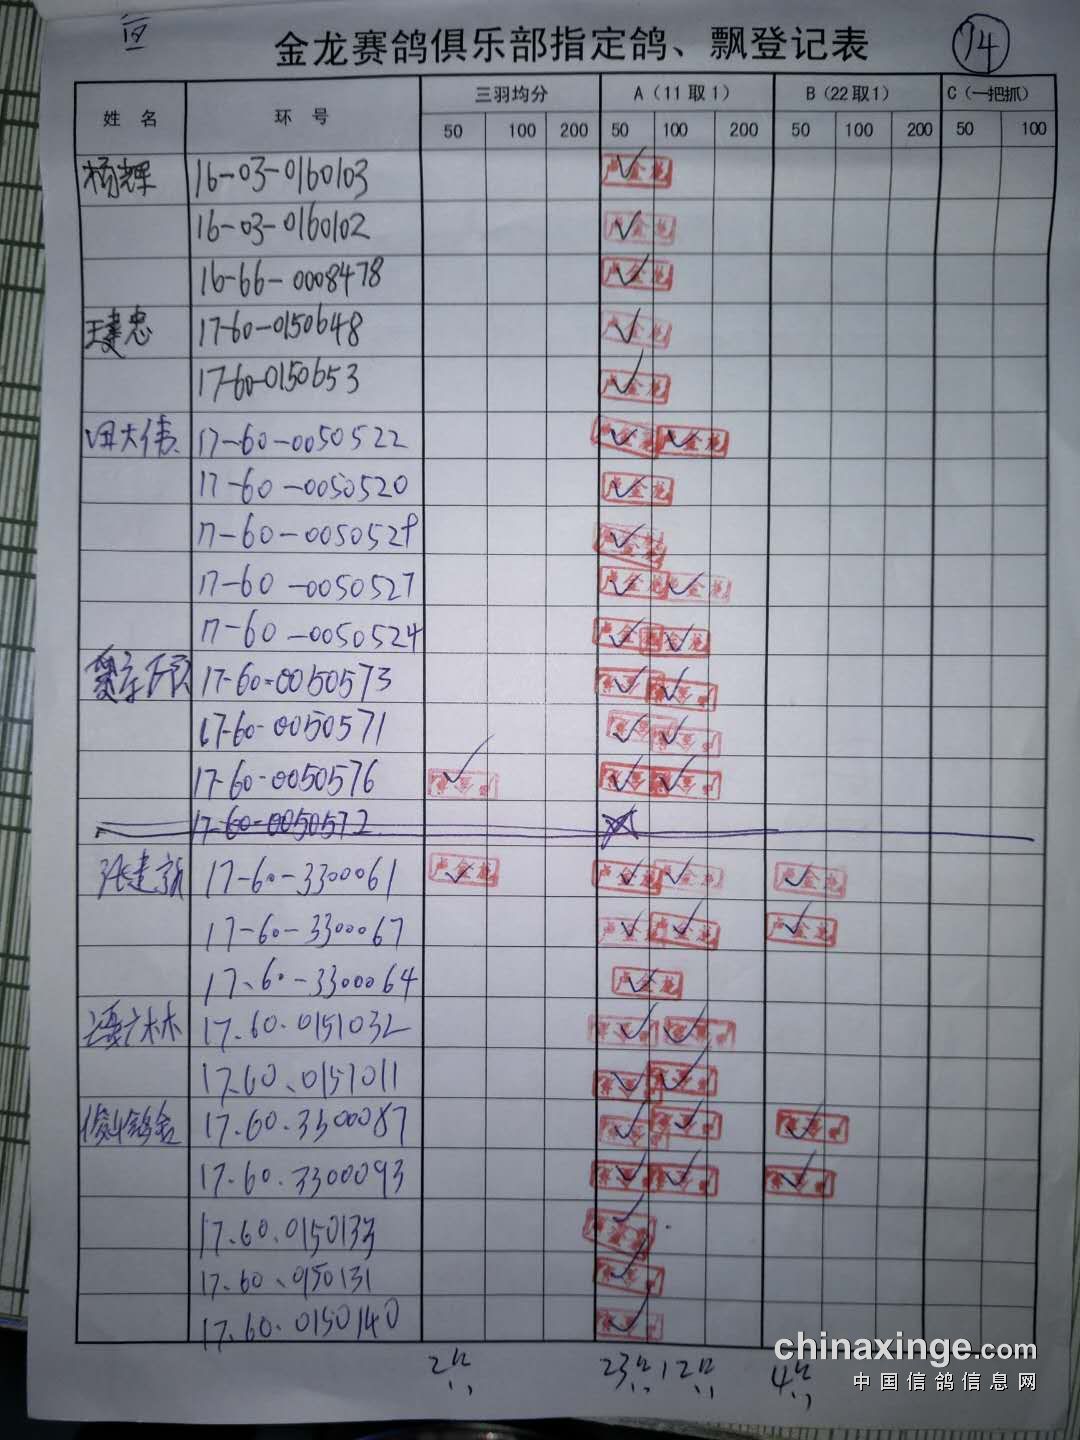 金龙赛鸽俱乐部指定鸽、飘登记表
74
姓 名 环 号 三羽均分 A（11取1） B（22取1） C（一把抓）
50 100 200 50 100 200 50 100 200 50 100
杨辉 16-03-0160103
16-03-0160102
16-66-0008478
王建忠 17-60-0150648
17-60-0150653
田大伟 17-60-0050522
17-60-0050520
17-60-005052
17-60-0050527
17-60-0050524
17-60-0050573
17-60-0050571
17-60-0050576
17-60-0050572
张建 17-60-3300061
17-60-3300067
17-60-3300064
17.60.0151032
17.60.0151011
17.60.3300087
17.60.3300093
17.60.0150133
17.60.0150131
17.60.0150140
2 23 12 4
chinaxinge.com
中国信鸽信息网